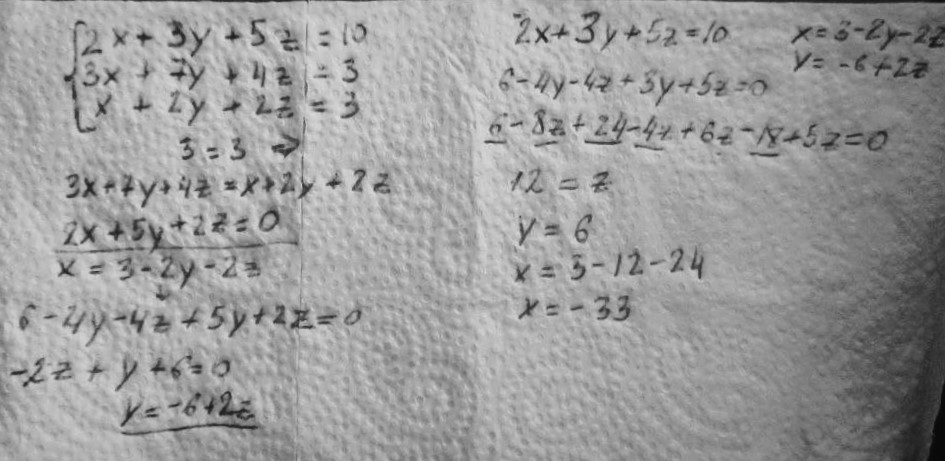 2x + 3y + 5z = 10
3x + 7y + 4z = 3
x + 2y + 2z = 3
3 = 3 ⇒
3x+7y+4z = x+2y+2z
2x+5y+2z=0
x = 3-2y-2z
↓
6-4y-4z+5y+2z=0
-2z + y +6=0
y=-6+2z
2x+3y+5z=10
x=3-2y-2z
y=-6+2z
6-4y-4z+3y+5z=0
6-8z+24-4z+6z-18+5z=0
12 = z
y = 6
x = 3-12-24
x = -33